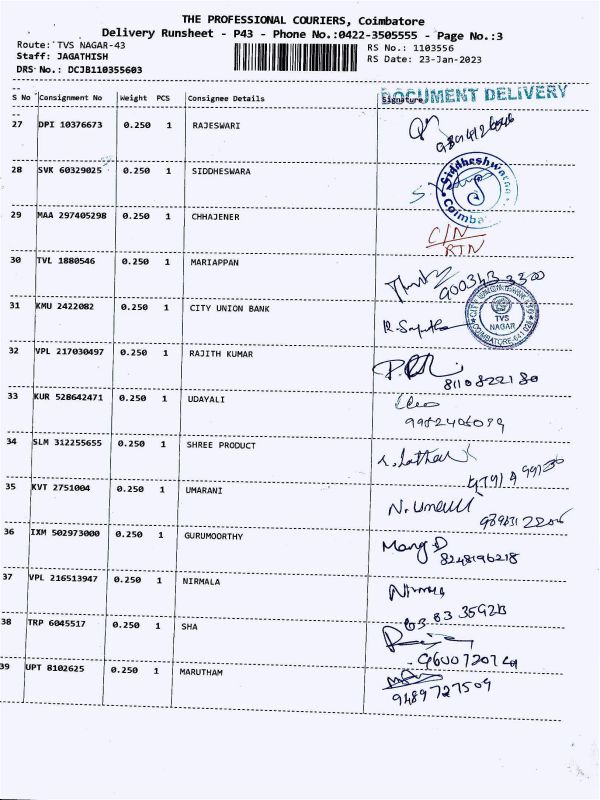 THE PROFESSIONAL COURIERS, Coimbatore
Delivery Runsheet - P43 - Phone No.:0422-3505555 - Page No.:3
Route: TVS NAGAR-43
RS No.: 1103556
Staff: JAGATHISH
RS Date: 23-Jan-2023
DRS No.: DCJB110355603
DOCUMENT DELIVERY
S No Consignment No Weight PCS Consignee Details Signature
27 DPI 10376673 0.250 1 RAJESWARI
28 SVK 60329025 0.250 1 SIDDHESWARA
Siddheshwaraa
Coimba
29 MAA 297405298 0.250 1 CHHAJENER
C/N
RTN
30 TVL 1880546 0.250 1 MARIAPPAN
900343 3300
31 KMU 2422082 0.250 1 CITY UNION BANK
TVS
NAGAR
32 VPL 217030497 0.250 1 RAJITH KUMAR
8110822180
33 KUR 528642471 0.250 1 UDAYALI
34 SLM 312255655 0.250 1 SHREE PRODUCT
35 KVT 2751004 0.250 1 UMARANI
36 IXM 502973000 0.250 1 GURUMOORTHY
8248196218
37 VPL 216513947 0.250 1 NIRMALA
Nirmala
38 TRP 6045517 0.250 1 SHA
39 UPT 8102625 0.250 1 MARUTHAM
9489727509